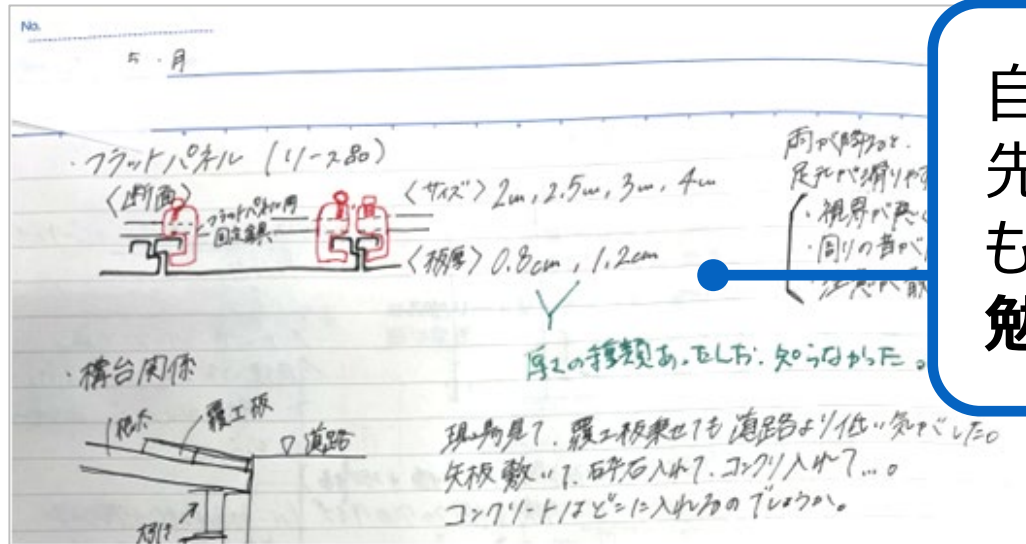 No.
5.月
・フラットパネル (リース品)
〈断面〉
フラットパネル用
固定金具
〈サイズ〉 2m, 2.5m, 3m, 4m
〈板厚〉 0.8cm, 1.2cm
厚さの種類あったしお.知らなかった。
雨が降ると.
足元が滑りやす
・視界が悪く
・周りの音が
・注意が散
・構台関係
根太
覆工板
▽道路
大引き
現場見て、覆工板乗せても道路より低い気がした。
矢板敷いて、砕石入れて、コンクリ入れて...。
コンクリートはどこに入れるのでしょうか。
自
先
も
勉